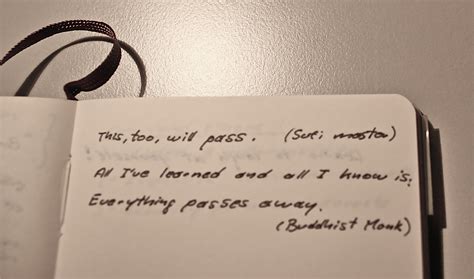 This, too, will pass. (Sufi master)
All I've learned and all I know is:
Everything passes away.
(Buddhist Monk)